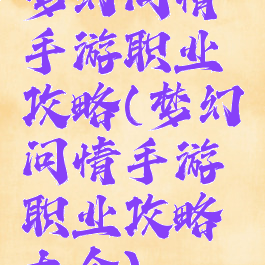 梦幻问情
手游职业
攻略(梦幻
问情手游
职业攻略
大全)